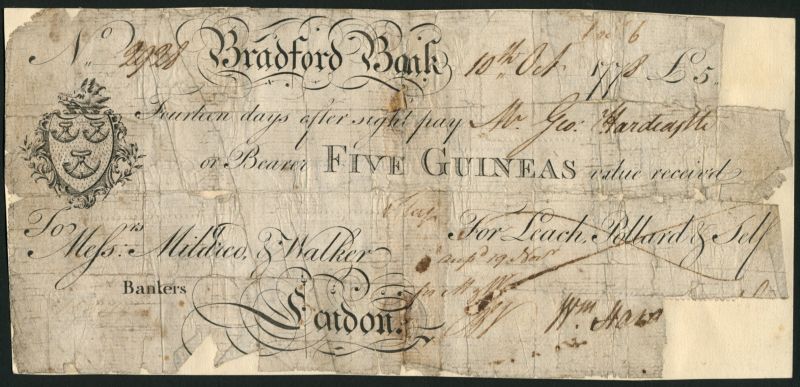 No. 2928 Bradford Bank 10th Oct 1778 £5
Fourteen days after sight pay Mr. Geo: Hardcastle
or Bearer FIVE GUINEAS value received
To For Leach, Pollard & Self
Messrs: Mildred, & Walker
Bankers
London.
Wm